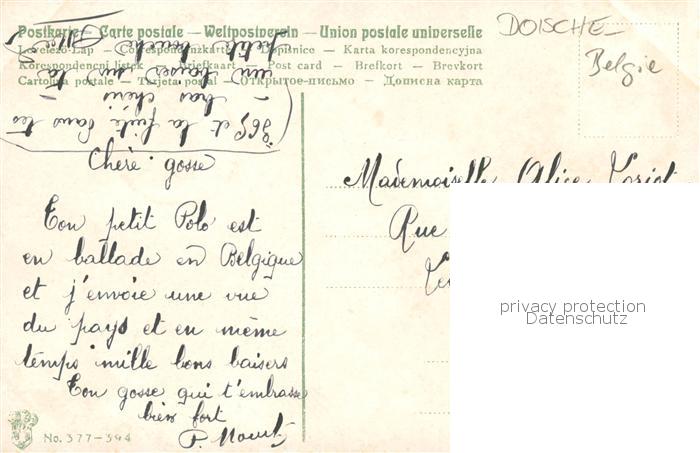 Postkarte — Carte postale — Weltpostverein — Union postale universelle
Levelező-Lap — Correspondenzkarte — Dopisnice — Karta korespondencyjna
Korespondencni listek — Briefkaart — Post card — Brefkort — Brevkort
Cartolina postale — Tarjeta postal — Открытое-письмо — Дописна карта
DOISCHE –
Belgie
et la suite dans tes
bras chéri –
un baiser sur ta
petite bouche
Chère gosse
Ton petit Polo est
en ballade en Belgique
et j'envoie une vue
du pays et en même
temps mille bons baisers
Ton gosse qui t'embrasse
bien fort
P.
Mademoiselle Alice
Rue
No. 377–394
privacy protection
Datenschutz